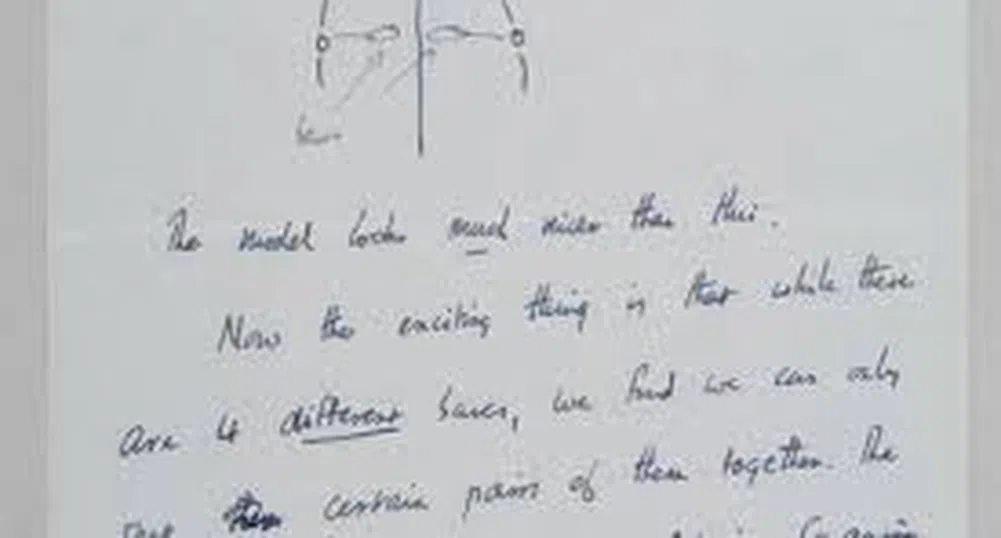 The model looks much nicer than this.
Now the exciting thing is that while there
are 4 different bases, we find we can only
put certain pairs of them together. The